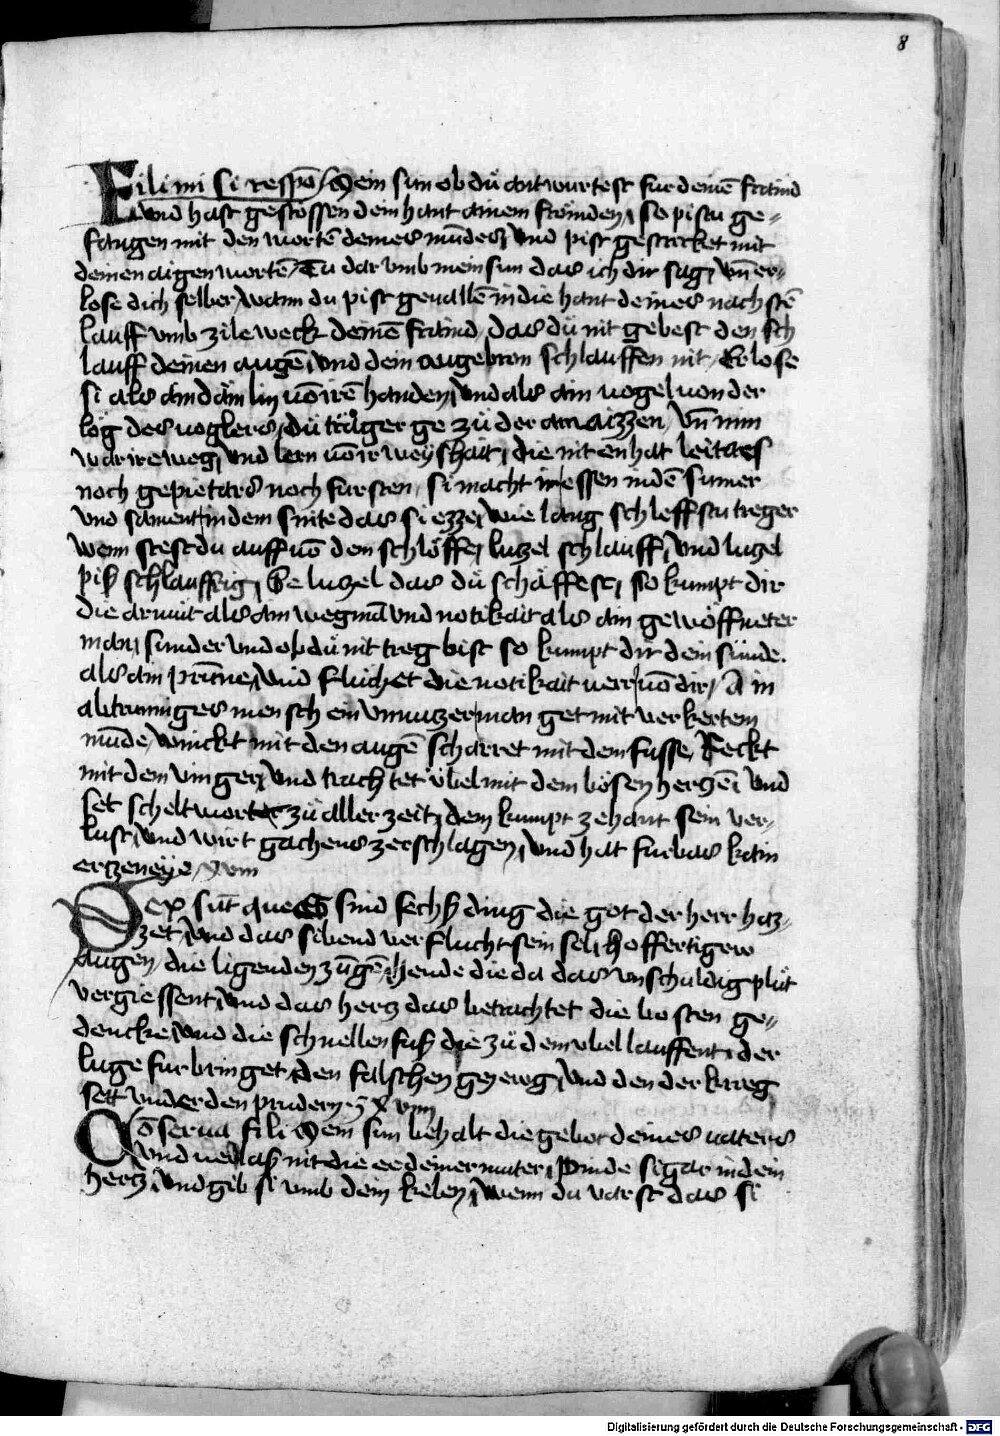 8
Fili mi si respō / Mein sun ob du antwurtest fur deinē fraind
vnd hast gestossen dein hant ainem frömden / so pistu ge-
fangen mit den wortē deines mūdes / vnd pist gestricket mit
deinen aigen wortē / Tu dar vmb mein sun das ich dir sag / vn̄ er-
lose dich selber / wann du pist geuallē in die hant deines nachstē
lauff vmb zile weck deinē fraind / das du nit gebest den sch
lauff deinen augē / vnd dein augebron schlauffen nit / Erlose
si als ain dämlin vō irē handen / vnd als ain uogel uon der
log des uoglers / du träger ge zu der amaizzen / Vn̄ nim
war ire weg / vnd lern vō ir weyshait / die nit enhat leitaes
noch gepietars noch fursten / si macht ir essen in dē sumer
vnd sament in dem snite das si ezze / wie lang schleffstu treger
wenn stest du auff vō dem schlöffe / luzel schlauff / vnd luzel
piß schlauffig / Ee luzel das du schäffest / so kumpt dir
die armut als ain wegmā vnd notikait als ain gewöffneter
man / sunder vnd ob du nit treg bist so kumpt dir dein sünde.
als ain prūne / vnd fluchet die notikait uerr uō dir / A in
abtrunniges mensch ein vnnuzer man get mit verkertem
mūde / winckt mit den augē scharret mit dem fusse / Reckt
mit dem vinger / vnd trachtet übel mit dem bösen herzē / vnd
set scheltworter zu aller zeit / dem kumpt zehant sein ver-
lust / vnd wirt gachens zerschlagen / vnd hat furbas kain
erzeneye / xvm
Sex sūt que Es sind sechß ding die got der herr haz-
zet / vnd das sibend verflucht sein sel / hoffertigew
augen / die ligenden zūgē / Hende die da das vnschuldig plut
vergiessent / vnd das herz das betrachtet die bosten ge-
dencke / vnd die schnellen fuß die zu dem vbel lauffent / der
luge furbringet / den falschen gezewg / vnd den der krieg
sett vnder den prudern
Cōserua fili Mein sun behalt die gebot deines vaters
vnd uerlaß nit die ee deiner muter / Pinde si gar in dein
herz / vnd gib si vmb dein kelen / wenn du varst das si
Digitalisierung gefördert durch die Deutsche Forschungsgemeinschaft - DFG